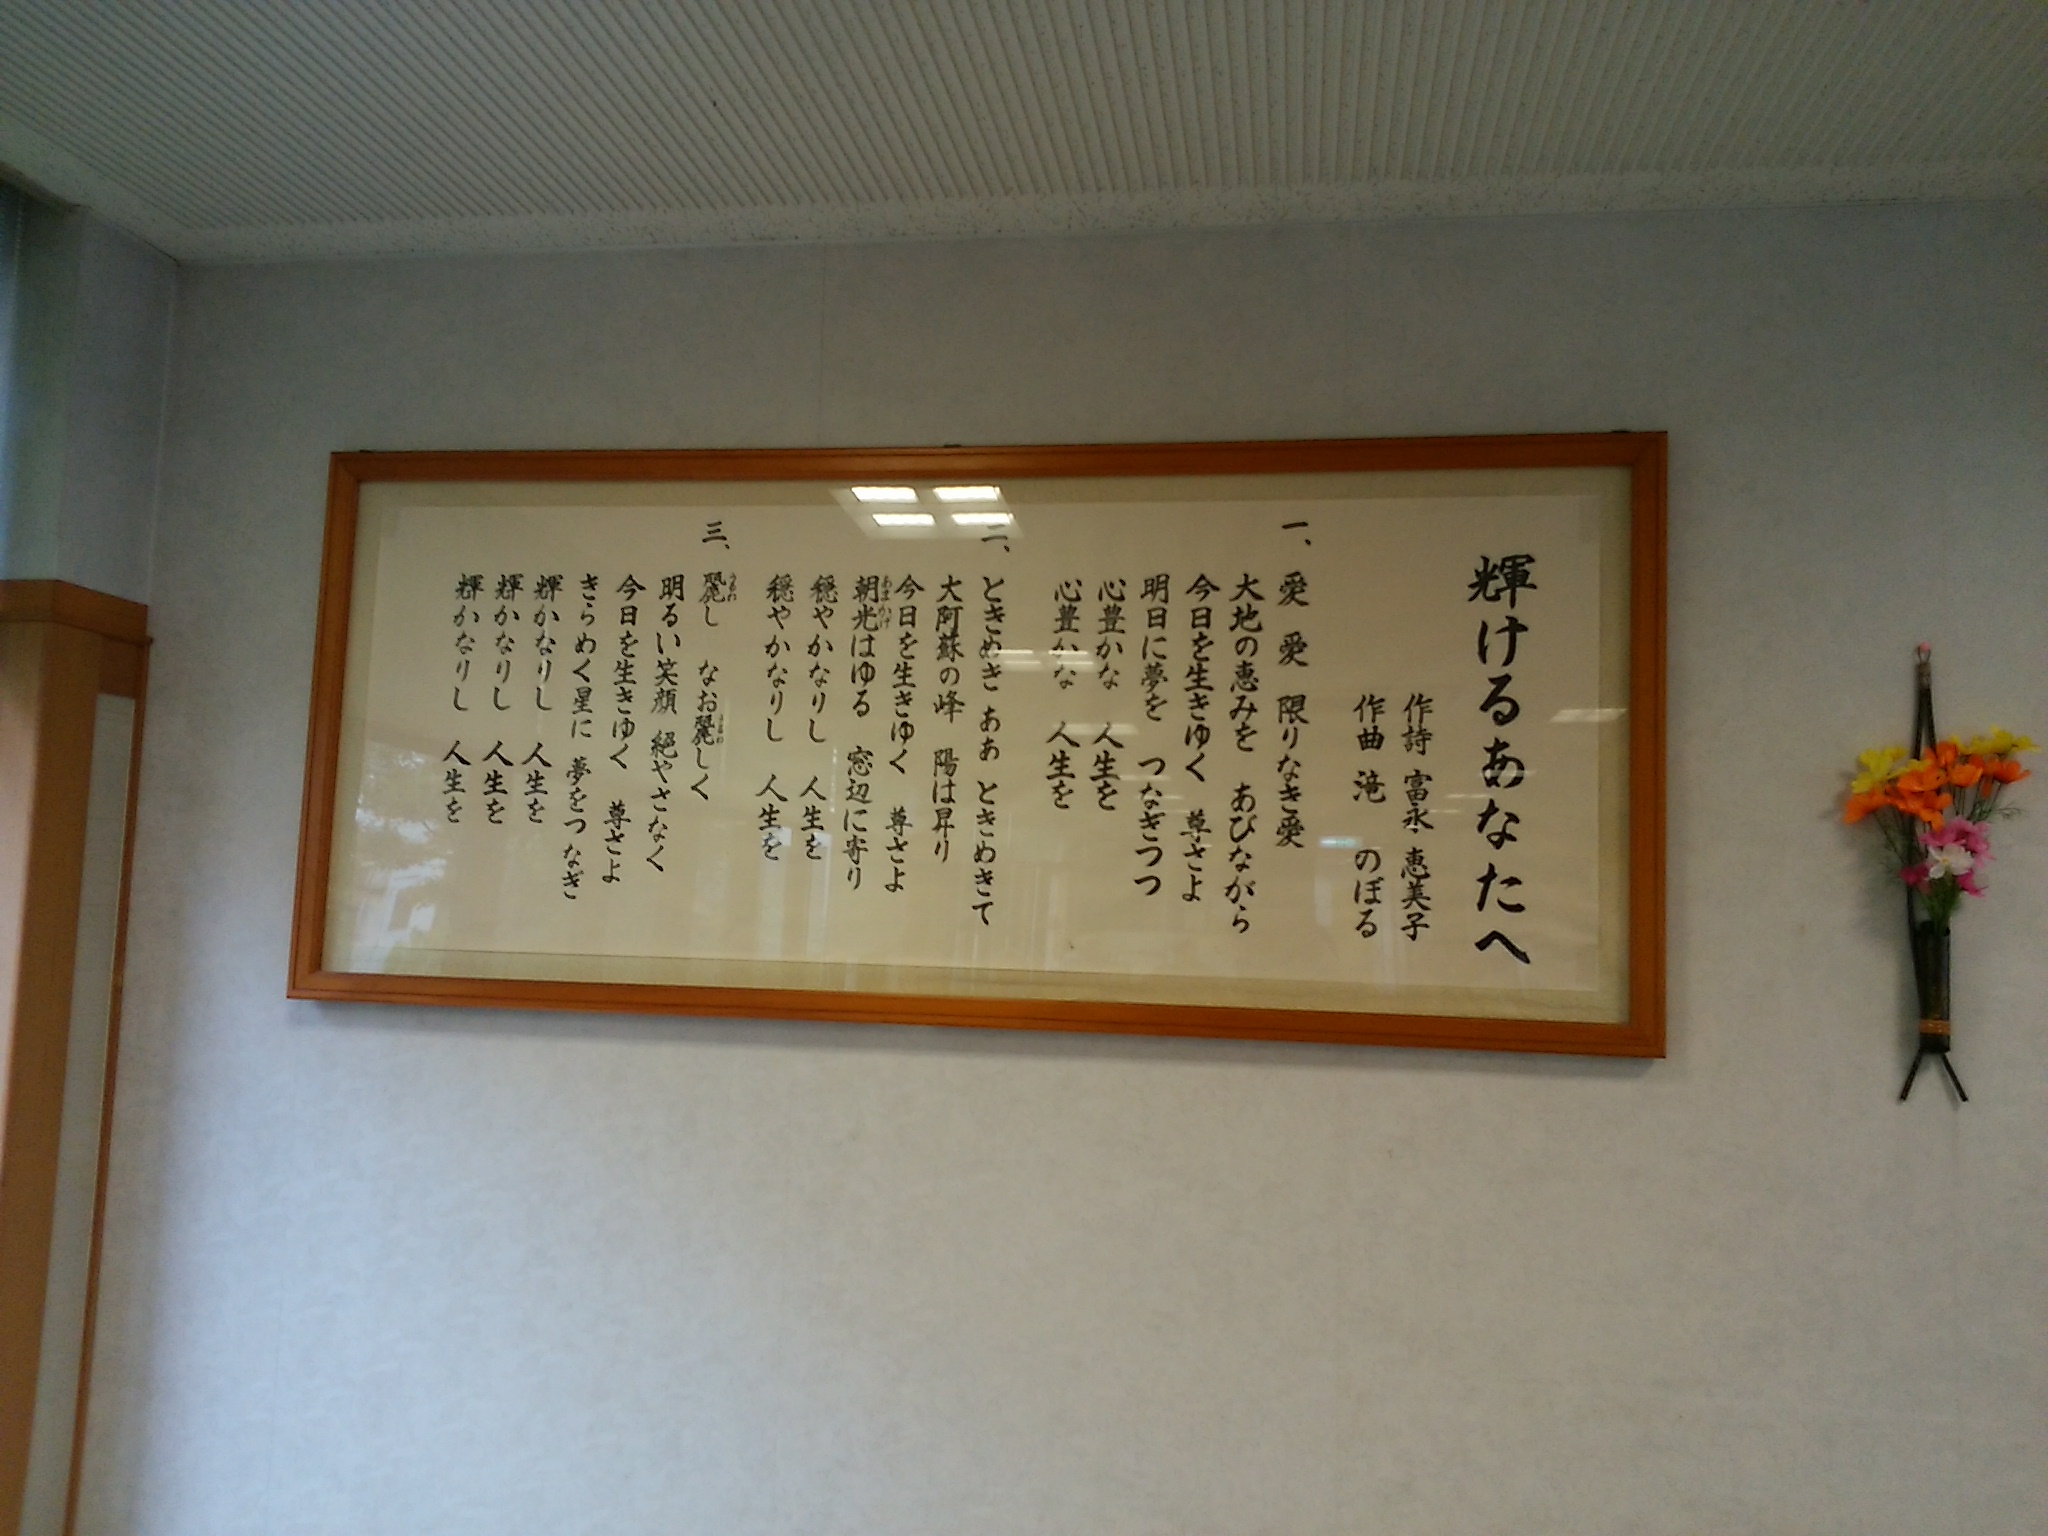 輝けるあなたへ
作詩 富永 恵美子
作曲 滝 のぼる
一、愛 愛 限りなき愛
大地の恵みを あびながら
今日を生きゆく 尊さよ
明日に夢を つなぎつつ
心豊かな 人生を
心豊かな 人生を
二、ときめき ああ ときめきて
大阿蘇の峰 陽は昇り
今日を生きゆく 尊さよ
朝光はゆる 窓辺に寄り
穏やかなりし 人生を
穏やかなりし 人生を
三、麗し なお麗しく
明るい笑顔 絶やさなく
今日を生きゆく 尊さよ
きらめく星に 夢をつなぎ
輝かなりし 人生を
輝かなりし 人生を
輝かなりし 人生を